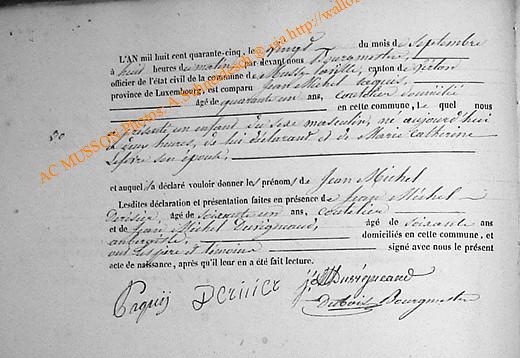 L'AN mil huit cent quarante-cinq, le vingt du mois de septembre
à huit heures du matin, par devant nous Bourgmestre,
officier de l'état civil de la commune de Mussy-la-ville, canton de
province de Luxembourg, est comparu Jean Michel
âgé de quarante un ans, coutelier domicilié
en cette commune, Le quel nous
a présenté un enfant du sexe masculin, né aujourd'hui
à deux heures, de lui déclarant et de Marie Catherine
son épouse,
et auquel il a déclaré vouloir donner le prénom de Jean Michel
Lesdites déclaration et présentation faites en présence de Jean Michel
Dernier, âgé de soixante un ans, coutelier
et de Jean Michel Duvigneaud, âgé de soixante ans
domiciliés en cette commune, et
ont les père et témoins signé avec nous le présent
acte de naissance, après qu'il leur en a été fait lecture.
Paquij Dernier Duvigneaud
Dubois Bourgmestre
AC MUSSON Photos: A.S. http://wallo